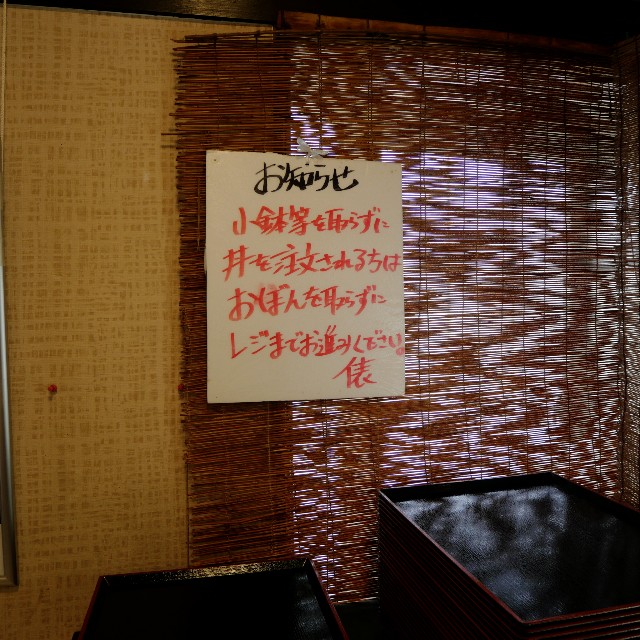 お知らせ
小鉢等を取らずに
丼を注文される方は
おぼんを取らずに
レジまでお進みください。
俵